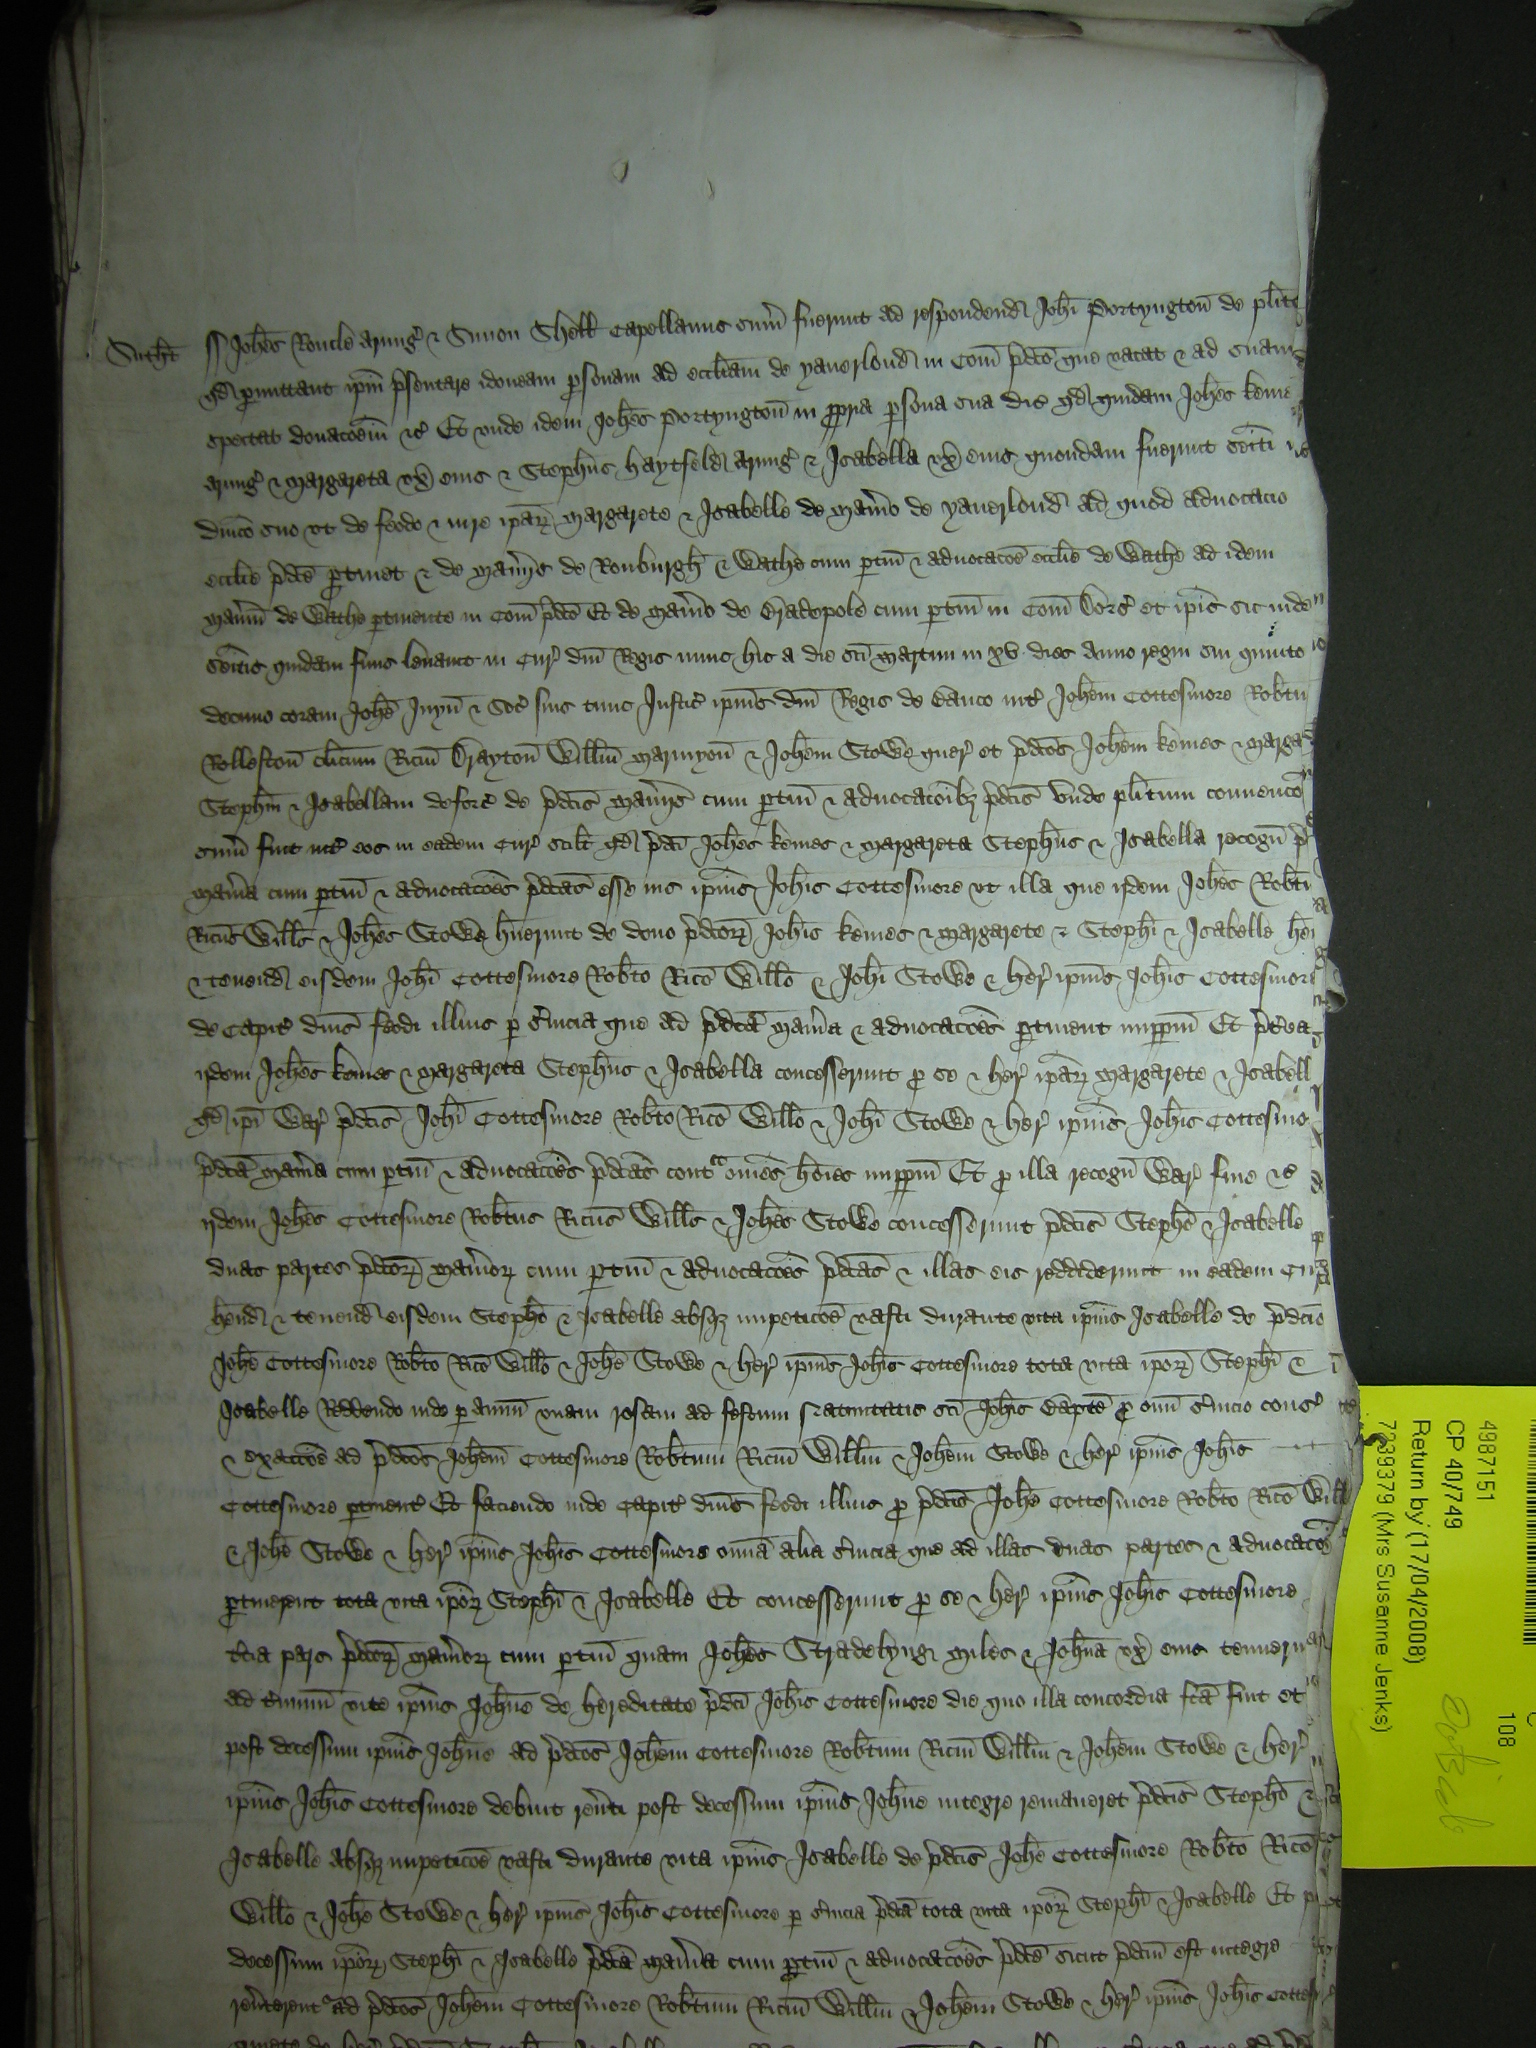 Sutht ss Johes Roucle armig & Simon Shell Capellanus sum fuerunt ad respondend Johi Portyngton de plito
qd pmittant ipm psentare idoneam psonam ad eccliam de yauerlond in Com pdco que vacat & ad suam
spectat donacoem &c Et unde idem Johes Portyngton in ppria psona sua dic qd quidam Johes keme
armig & Margareta ux eius & Stephus haytfeld armig & Isabella ux eius quondam fuerunt seiti
dnico suo ut de feodo & iure ipar Margarete & Isabelle de Manio de yauerlond ad quod aduocacio
ecclie pdce ptinet & de Maniis de Rouburgh & Wathe cum ptin & aduocacoe ecclie de Wathe ad idem
Maniu de Wathe ptinente in Com pdco Et de Manio de Bradepole cum ptin in Com Dors et ipis sic inde
seitis quidam finis leuauit in Cur dni Regis nunc hic a die sci Martini in xv dies anno regni sui quinto
decimo coram Johe Juyn & Soc suis tunc Justic ipius dni Regis de Banco int Johem Cottesmore Robtu
Rolleston clicum Ricm Drayton Willm Marmyon & Johem Stowe quer et pdcos Johem kemes & Marga
Stephm & Isabellam deforc de pdcis Maniis cum ptin & aduocacoibz pdcis Unde plitum convenco
sum fuit int eos in eadem Cur scilt qd pdci Johes kemes & Margareta Stephus & Isabella recogn
Mania cum ptin & aduocacoes pdcas esse ius ipius Johis Cottesmore ut illa que ijdem Johes Robti
Ricus Wills & Johes Stowe huerunt de dono pdcor Johis kemes & Margarete & Stephi & Isabelle
& tenend eisdem Johi Cottesmore Robto Rico Willo & Johi Stowe & her ipius Johis Cottesmore
de Capit dnis feodi illius p suicia que ad pdca Mania & aduocacoes ptinent imppm Et pterea
ijdem Johes kemes & Margareta Stephus & Isabella concesserunt p se & her ipar Margarete & Isabell
qd ipi War pdcis Johi Cottesmore Robto Rico Willo & Johi Stowe & her ipius Johis Cottesmo
pdca Mania cum ptin & aduocacoes pdcas contra omes hoies imppm Et p illa recogn War fine &c
ijdem Johes Cottesmore Robtus Ricus Wills & Johes Stowe concesserunt pdcis Stepho & Isabelle
duas partes pdcor Manior cum ptin & aduocacoes pdcas & illas eis reddiderunt in eadem Cur
hend & tenend eisdem Stepho & Isabelle absqz impeticoe vasti durante vita ipius Isabelle de pdcis
Johe Cottesmore Robto Rico Willo & Johe Stowe & her ipius Johis Cottesmore tota vita ipor Stephi &
Isabelle Reddendo inde p annu unam rosam ad festum Natiuitatis sci Johis Bapte p omi suicio cons
& exaccoe ad pdcos Johem Cottesmore Robtum Ricm Willm & Johem Stowe & her ipius Johis
Cottesmore ptinent Et faciendo inde Capit dnis feodi illius p pdcis Johe Cottesmore Robto Rico Will
& Johe Stowe & her ipius Johis Cottesmore omia alia suicia que ad illas duas partes & aduocacoes
ptinerent tota vita ipor Stephi & Isabelle Et concesserunt p se & her ipius Johis Cottesmore
tcia pars pdcor Manior cum ptin quam Johes Stradelyng Miles & Johna ux eius tenueru
ad tminu vite ipius Johne de hereditate pdci Johis Cottesmore die quo illa concordia fca fuit et
post decessum ipius Johne ad pdcos Johem Cottesmore Robtum Ricm Willm & Johem Stowe & her
ipius Johis Cottesmore debuit reuti post decessum ipius Johne integre remaneret pdcis Stepho &
Isabelle absqz impeticoe vasti durante vita ipius Isabelle de pdcis Johe Cottesmore Robto Rico
Willo & Johe Stowe & her ipius Johis Cottesmore p suicia pdca tota vita ipor Stephi & Isabelle Et
decessum ipor Stephi & Isabelle pdca Mania cum ptin & aduocacoes pdce sicut pdcm est integre
reuterent ad pdcos Johem Cottesmore Robtum Ricm Willm & Johem Stowe & her ipius Johis Cottes
4987151
CP 40/749
Return by (17/04/2008)
7339379 (Mrs Susanne Jenks)
108